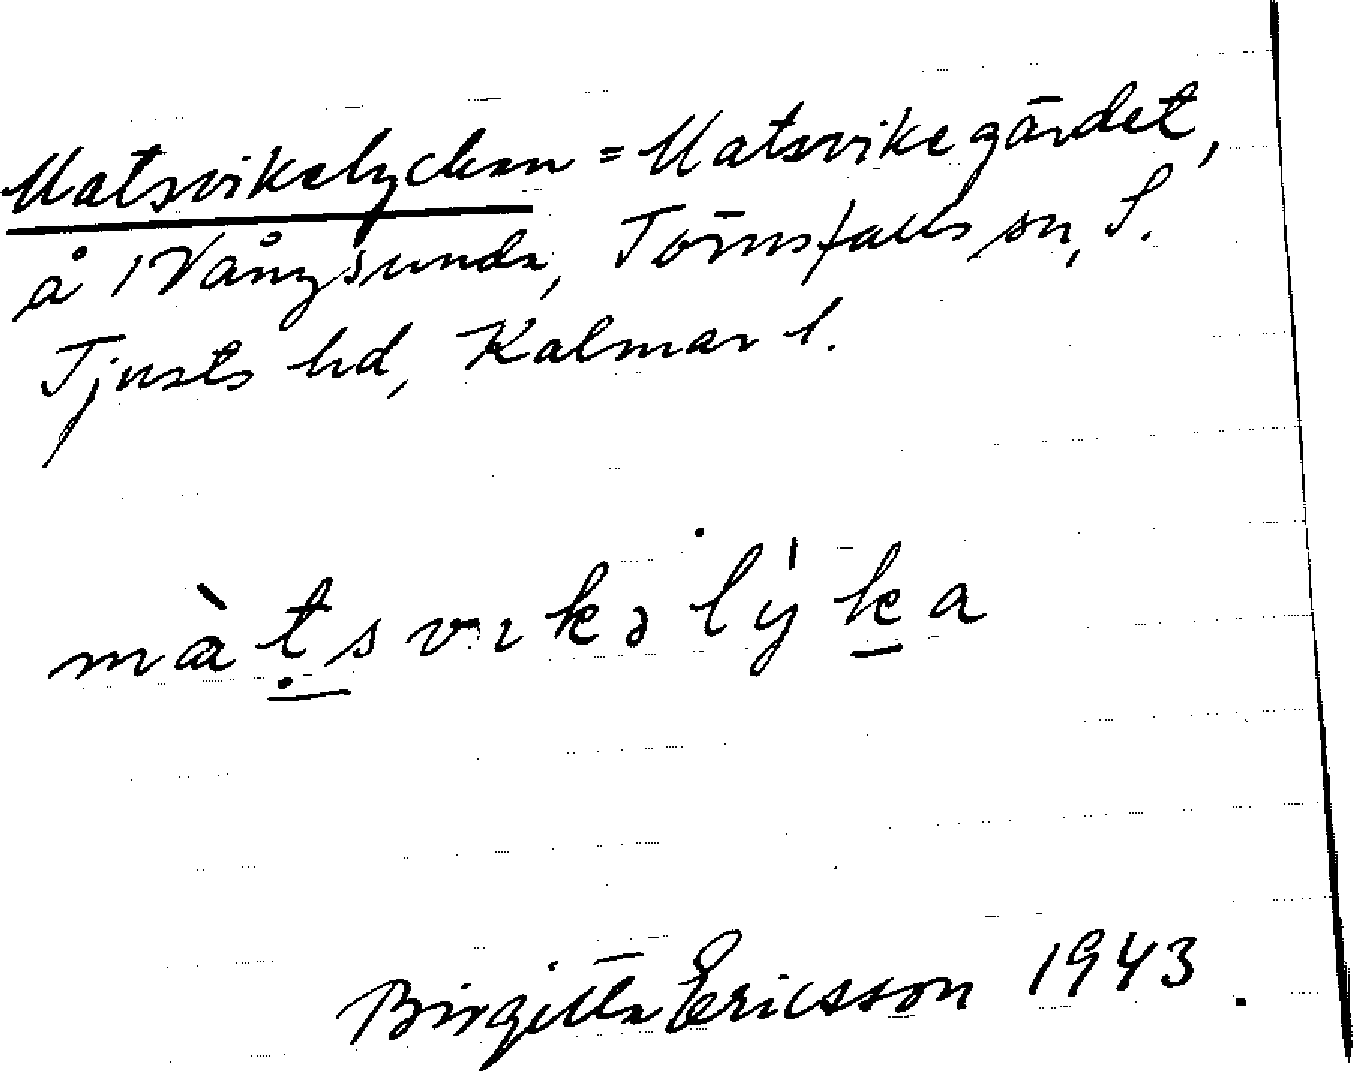 Matsvikelyckan = Matsvikegärdet,
å 1 Vångsunda, Törnsfalls sn, S.
Tjusts hd, Kalmar l.
màtsvıkəlýka
Birgitta Ericsson 1943.